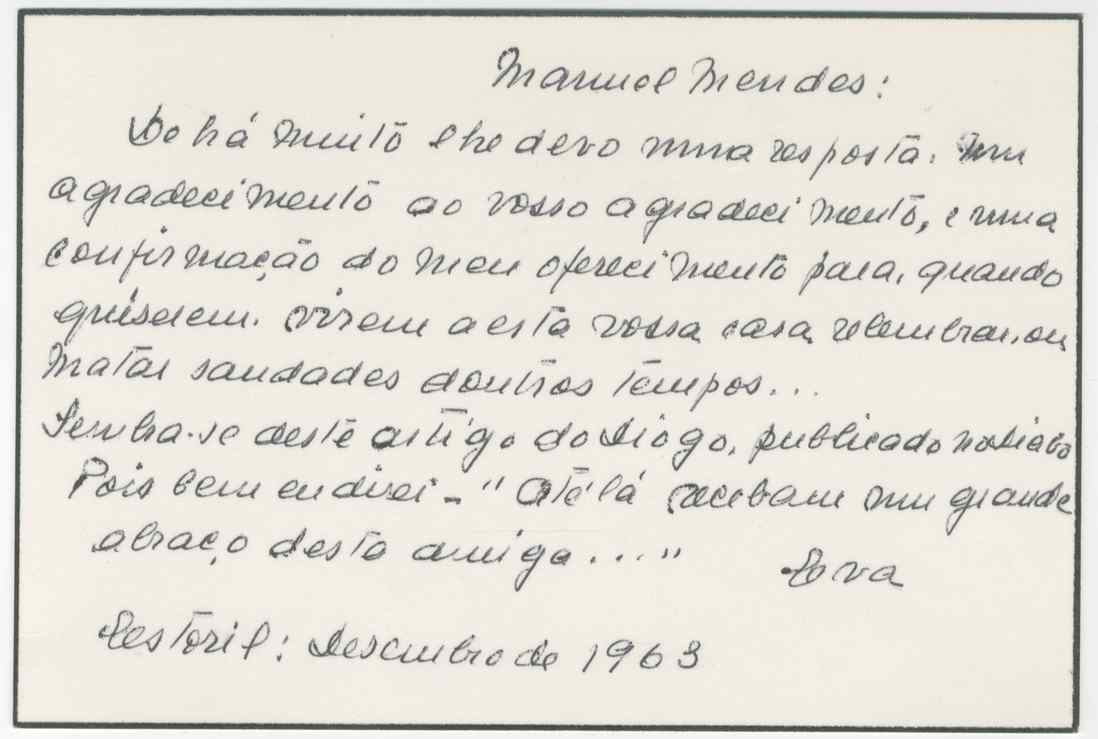 Manuel Mendes:
De há muito lhe devo uma resposta. Um
agradecimento ao vosso agradecimento, e uma
confirmação do meu oferecimento para, quando
quiserem. virem a esta vossa casa, relembrar, ou
matar saudades doutros tempos...
Lembra-se deste artigo do Diogo, publicado no Diabo
Pois bem eu direi - "Até lá recebam um grande
abraço desta amiga...."
Eva
Estoril: Desembro de 1963